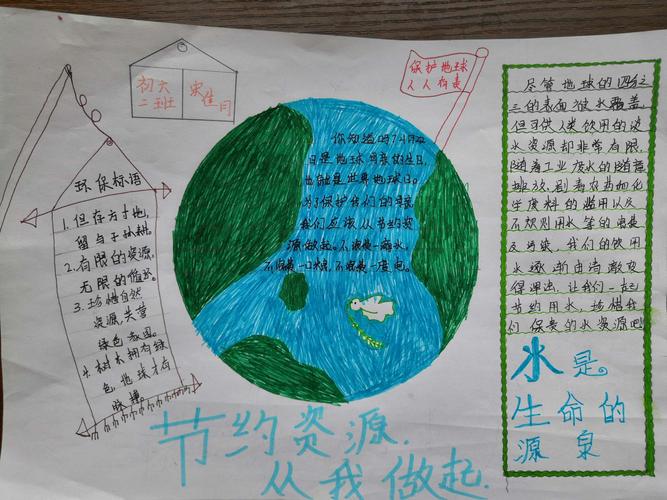 初六
二班
宋佳
保护地球
人人有责
环保标语
1. 但存方寸地,
留与子孙耕。
2. 有限的资源,
无限的循环。
3. 珍惜自然
资源,共营
绿色家园。
4. 树木拥有绿
色,地球才有
脉搏。
你知道吗?4月22
日是地球母亲的生日,
也就是世界地球日。
为了保护我们的家园
我们应该从节约资
源做起。不浪费一滴水,
不浪费一口粮,不浪费一度电。
尽管地球的四分之
三的表面被水覆盖,
但可供人类饮用的淡
水资源却非常有限,
随着工业废水的随意
排放,别看农药和化
学废料的滥用以及
不规则用水等的浪费
及污染,我们的饮用
水逐渐由清澈变
得 让我们一起
节约用水,珍惜我
们 的水资源吧
水是
生命的
源泉
节约资源,
从我做起.